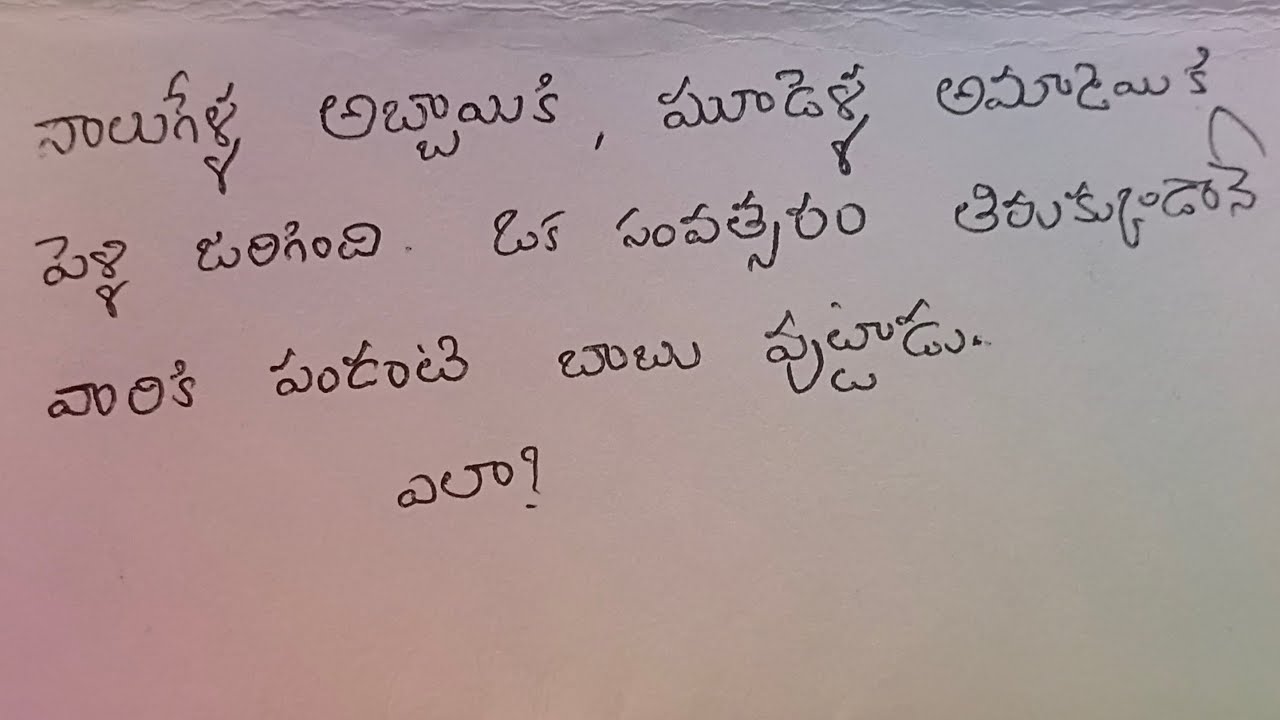 నాలుగేళ్ళ అబ్బాయికి, మూడేళ్ళ అమ్మాయికి
పెళ్ళి జరిగింది. ఒక సంవత్సరం తిరుక్కుండానే
వారికి పండంటి బాబు పుట్టాడు.
ఎలా?